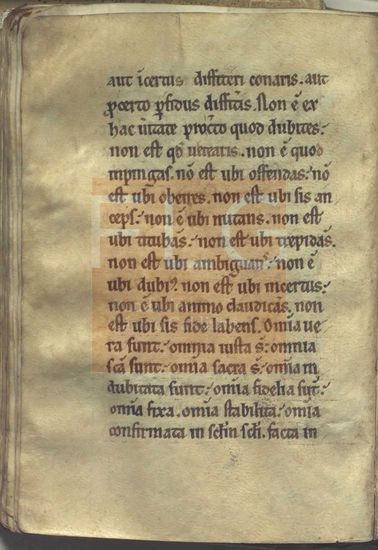 aut ĩcertus diffiteri conaris. aut
ꝓcerto ꝑfidus diffitẽis. Non ẽ ex
hac ũitate ꝓrẽto quod dubites.
non est qd uerearis. non ẽ quod
inpingas. nõ est ubi offendas. nõ
est ubi oberres. non est ubi sis an
ceps. non ẽ ubi nutans. non est
ubi titubãs. non est ubi trepidãs.
non est ubi ambiguans. non ẽ
ubi dubiꝰ. non est ubi incertus.
non ẽ ubi animo claudicãs. non
est ubi sis fide labens. Omĩa ue
ra sunt. omnia iusta s̃. omnia
scã sunt. omia sacra s̃. omĩa in
dubitata sunt. omĩa fidelia sũt.
omĩa fixa. omĩa stabilita. omĩa
confirmata in facta in